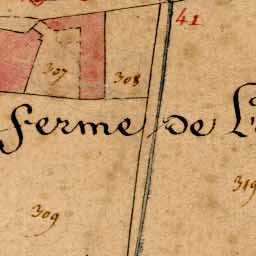 41
307 308
ferme de
319
309